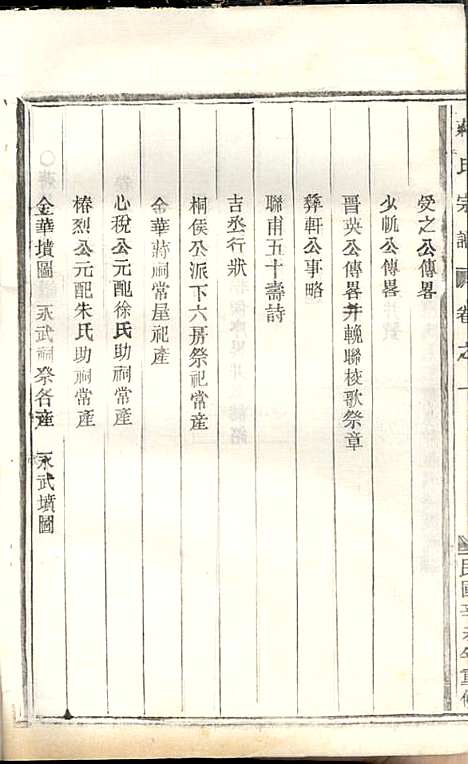 氏宗譜 卷之一
民國辛未年重修
受之公傳畧
少帆公傳畧
晋英公傳畧并輓聯梭歌祭章
彝軒公事略
聯甫五十壽詩
吉丞行狀
桐侯公派下六房祭祀常產
金華蔣祠常屋祀產
心稅公元配徐氏助祠常產
椿烈公元配朱氏助祠常產
金華墳圖 永武祠祭各產 永武墳圖